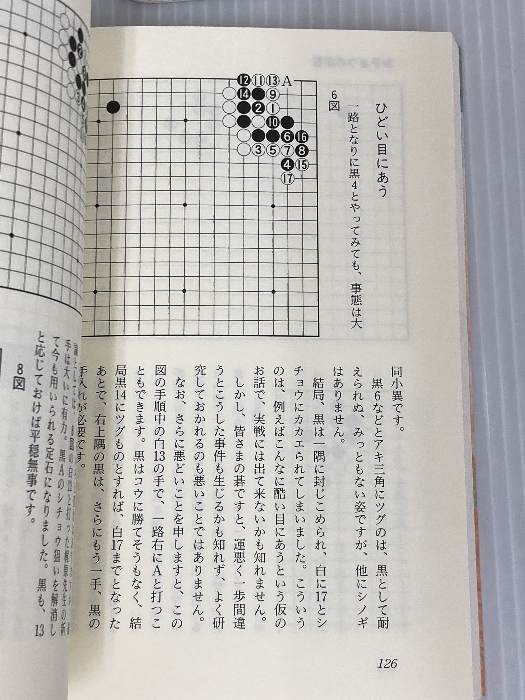 ひどい目にあう
6図
一路となりに黒4とやってみても、事態は大
⑫⑪⑬A
⑭②⑨
①
⑩
⑥⑯
③⑤⑦⑧
④⑮
⑰
同小異です。
黒6などとアキ三角にツグのは、黒として耐
えられぬ、みっともない姿ですが、他にシノギ
はありません。
結局、黒は一隅に封じこめられ、白に17とシ
チョウにカカエられてしまいました。こういう
のは、例えばこんなに酷い目にあうという仮の
お話で、実戦には出て来ないかも知れません。
しかし、皆さまの碁ですと、運悪く一歩間違
うとこうした事件も生じるかも知れず、よく研
究しておかれるのも悪いことではありません。
なお、さらに悪どいことを申しますと、この
図の手順中の白13の手で、一路右にAと打つこ
ともできます。黒はコウに勝てそうもなく、結
局黒14にツグものとすれば、白17までとなった
あとで、右上隅の黒は、さらにもう一手、黒の
手入れが必要です。
126
手は大いに有力。黒Aのシチョウ狙いを解消し
て今も用いられる定石になりました。黒も、13
と応じておけば平穏無事です。
8図